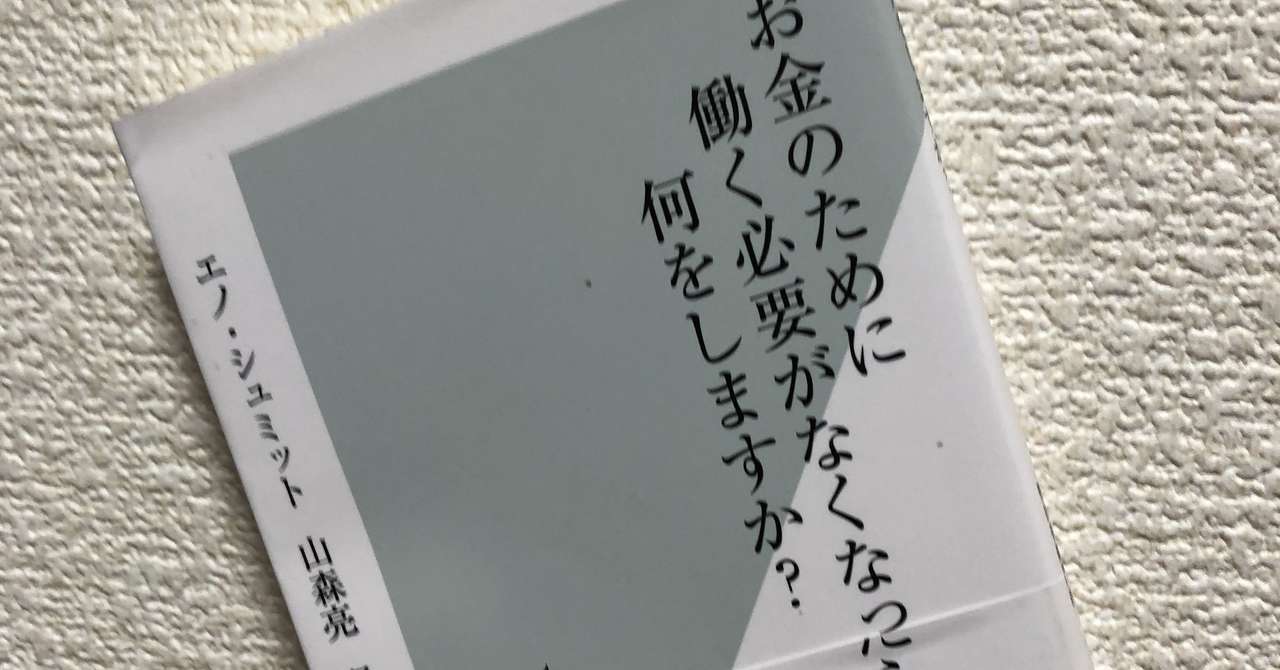 お金のために
働く必要がなくなった
何をしますか?
エノ・シュミット 山森亮